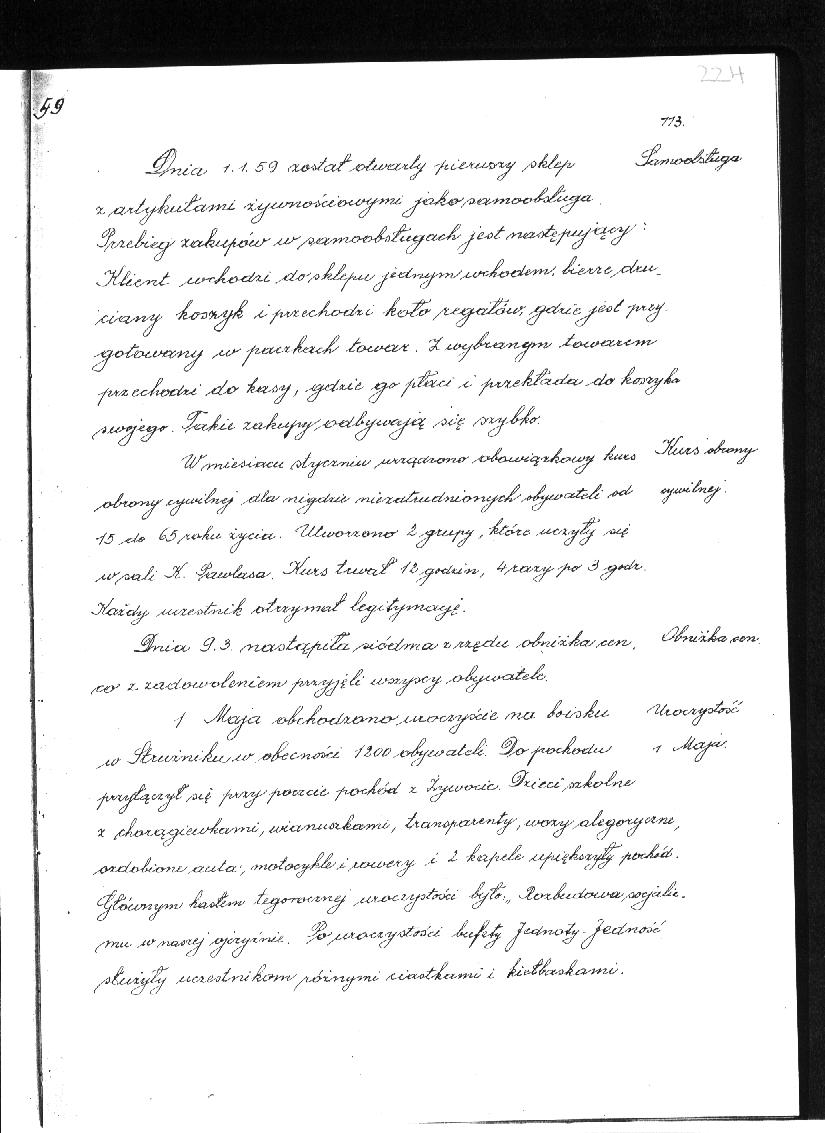 224
59
113.
Dnia 1.1.59 został otwarty pierwszy sklep
Samoobsługa
z artykułami żywnościowymi jako samoobsługa.
Przebieg zakupów w samoobsługach jest następujący:
Klient wchodzi do sklepu jednym wchodem, bierze dru-
ciany koszyk i przechodzi koło regałów, gdzie jest przy-
gotowany w paczkach towar. Z wybranym towarem
przechodzi do kasy, gdzie go płaci i przekłada do koszyka
swojego. Takie zakupy odbywają się szybko.
W miesiacu styczniu urządzono obowiązkowy kurs
Kurs obrony
obrony cywilnej dla nigdzie niezatrudnionych obywateli od
cywilnej.
15 do 65 roku życia. Utworzono 2 grupy, które uczyły się
w sali K. Pawlasa. Kurs trwał 12 godzin, 4 razy po 3 godz.
Każdy uczestnik otrzymał legitymację.
Dnia 9.3. nastąpiła siódma z rzędu obniżka cen,
Obniżka cen.
co z zadowoleniem przyjęli wszyscy obywatele.
1 Maja obchodzono uroczyście na boisku
Uroczystość
w Strużniku w obecności 1200 obywateli. Do pochodu
1 Maja.
przyłączył się przy poczcie pochód z Żywocic. Dzieci szkolne
z chorągiewkami, wianuszkami, transparenty, wozy alegoryczne,
ozdobione auta, motocykle i rowery i 2 kapele upiększyły pochód.
Głównym hasłem tegorocznej uroczystości było: „Rozbudowa socjaliz-
mu w naszej ojczyźnie. Po uroczystości bufety Jednoty-Jedność
służyły uczestnikom różnymi ciastkami i kiełbaskami.